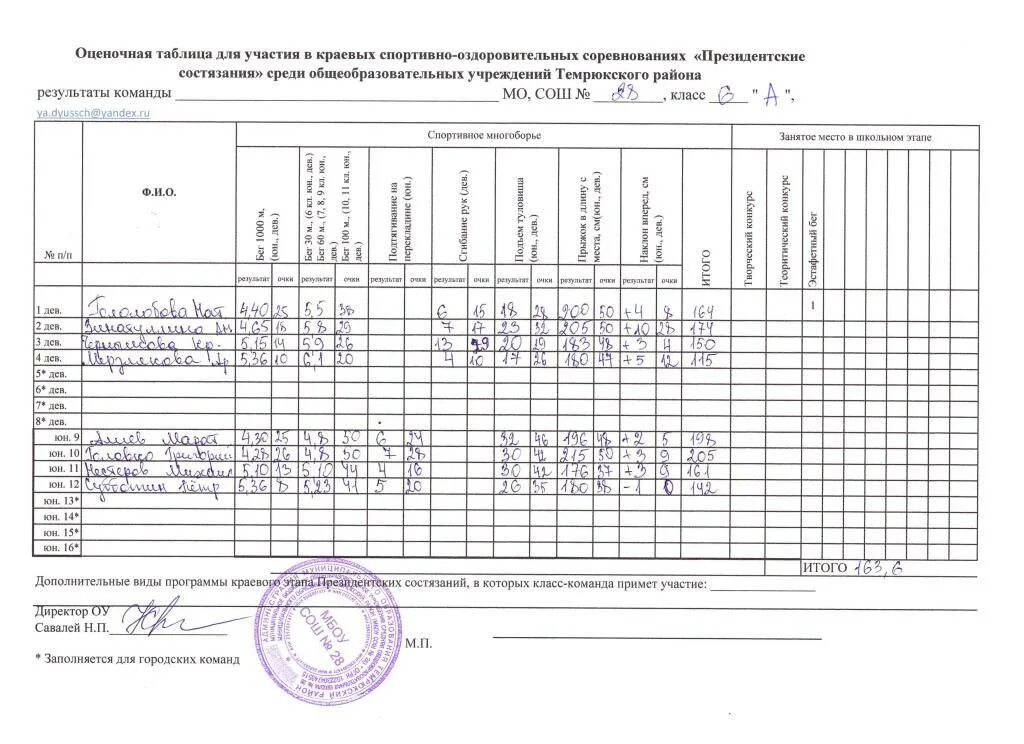 Оценочная таблица для участия в краевых спортивно-оздоровительных соревнованиях «Президентские
состязания» среди общеобразовательных учреждений Темрюкского района
результаты команды МО, СОШ № 28, класс 6 " А ",
ya.dyussch@yandex.ru
Спортивное многоборье Занятое место в школьном этапе
№ п/п Ф.И.О. Бег 1000 м, (юн., дев.) Бег 30 м., (6 кл. юн., дев.) Бег 60 м., (7, 8, 9 кл. юн., дев.) Бег 100 м., (10, 11 кл. юн., дев.) Подтягивание на перекладине (юн.) Сгибание рук (дев.) Подъем туловища (юн., дев.) Прыжок в длину с места, см(юн., дев.) Наклон вперед, см (юн., дев.) ИТОГО Творческий конкурс Теоритический конкурс Эстафетный бег
результат очки результат очки результат очки результат очки результат очки результат очки результат очки
1 дев. Гололобова Нат 4,40 25 5,5 38 6 15 18 28 200 50 +4 8 164 1
2 дев. Зинатуллина Ан 4,65 18 5,8 29 7 17 23 32 205 50 +10 28 174
3 дев. Кр. 5,15 14 5,9 26 13 20 29 183 48 +3 4 150
4 дев. 5,36 10 6,1 20 4 10 17 26 180 47 +5 12 115
5* дев.
6* дев.
7* дев.
8* дев.
юн. 9 Алиев Марат 4,30 25 4,8 50 6 24 32 46 196 48 +2 5 198
юн. 10 Григорий 4,28 26 4,8 50 7 28 30 42 215 50 +3 9 205
юн. 11 Нестеров Михаил 5,10 13 5,10 44 4 16 30 42 176 37 +3 9 161
юн. 12 Субботин Пётр 5,36 8 5,23 41 5 20 26 35 180 38 -1 0 142
юн. 13*
юн. 14*
юн. 15*
юн. 16*
ИТОГО 163,6
Дополнительные виды программы краевого этапа Президентских состязаний, в которых класс-команда примет участие:
Директор ОУ
Савалей Н.П.
М.П.
МБОУ
СОШ № 28
* Заполняется для городских команд